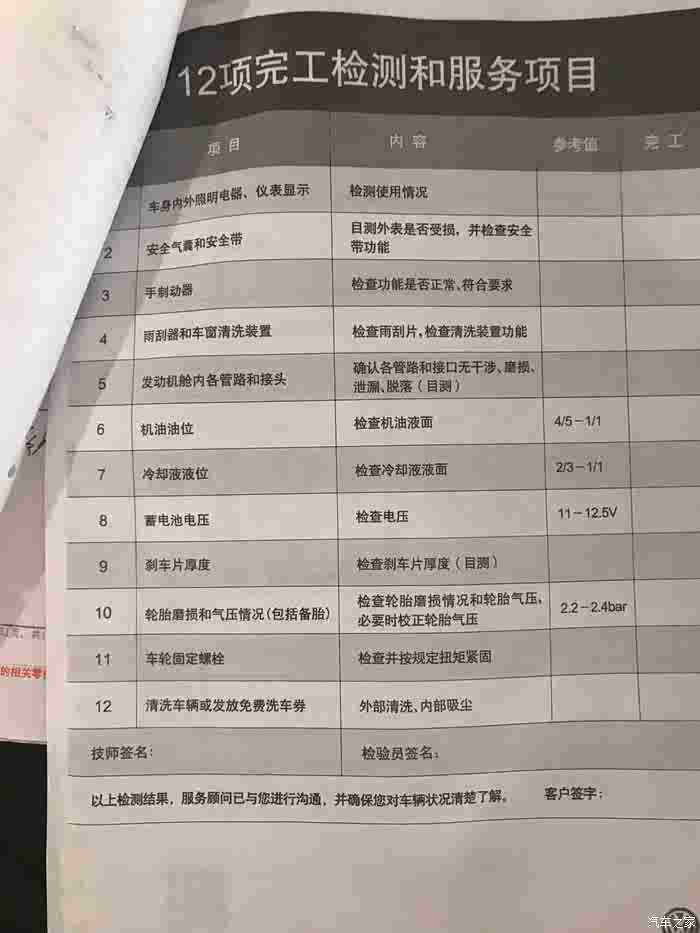 12项完工检测和服务项目
项目 内容 参考值 完工
车身内外照明电器、仪表显示 检测使用情况
2 安全气囊和安全带 目测外表是否受损，并检查安全
带功能
3 手制动器 检查功能是否正常、符合要求
4 雨刮器和车窗清洗装置 检查雨刮片，检查清洗装置功能
5 发动机舱内各管路和接头 确认各管路和接口无干涉、磨损、
泄漏、脱落（目测）
6 机油油位 检查机油液面 4/5－1/1
7 冷却液液位 检查冷却液液面 2/3－1/1
8 蓄电池电压 检查电压 11－12.5V
9 刹车片厚度 检查刹车片厚度（目测）
10 轮胎磨损和气压情况（包括备胎） 检查轮胎磨损情况和轮胎气压，
必要时校正轮胎气压 2.2－2.4bar
11 车轮固定螺栓 检查并按规定扭矩紧固
12 清洗车辆或发放免费洗车券 外部清洗、内部吸尘
技师签名： 检验员签名：
以上检测结果，服务顾问已与您进行沟通，并确保您对车辆状况清楚了解。 客户签字：
的相关零
汽车之家